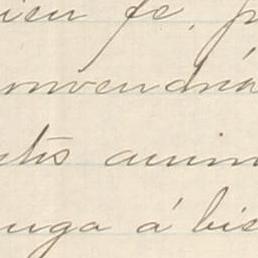 bien fe, p
onvendrá
tis anim
uga á bis